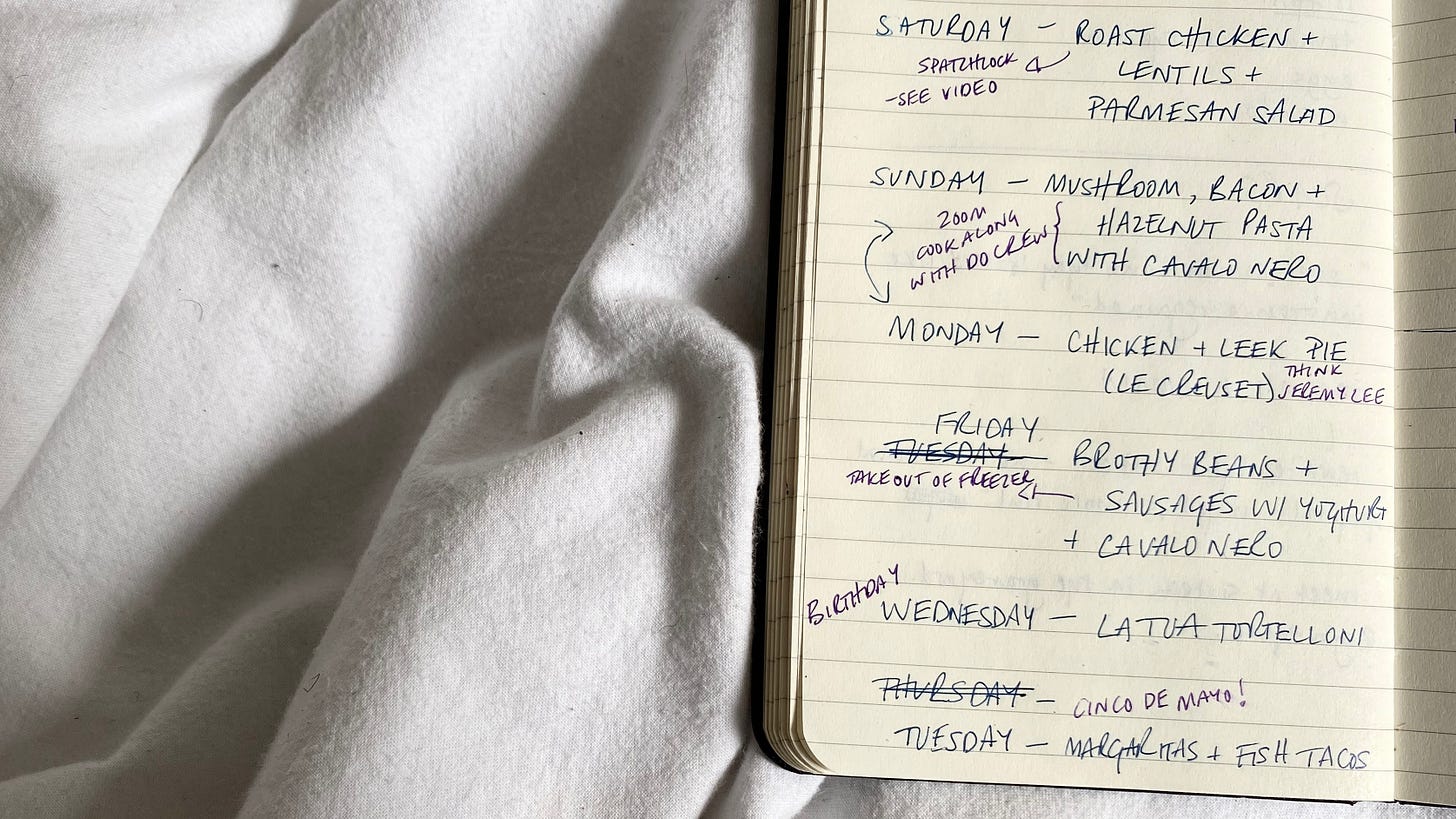 SATURDAY – ROAST CHICKEN +
SPATCHLOCK
LENTILS +
-SEE VIDEO
PARMESAN SALAD
SUNDAY – MUSHROOM, BACON +
ZOOM
COOK ALONG
WITH DO CREW
HAZELNUT PASTA
WITH CAVALO NERO
MONDAY – CHICKEN + LEEK PIE
(LE CREUSET) THINK
JEREMY LEE
FRIDAY
TUESDAY – BROTHY BEANS +
TAKE OUT OF FREEZER
SAUSAGES W/ YOGHURT
+ CAVALO NERO
BIRTHDAY
WEDNESDAY – LA TUA TORTELLONI
THURSDAY – CINCO DE MAYO!
TUESDAY – MARGARITAS + FISH TACOS